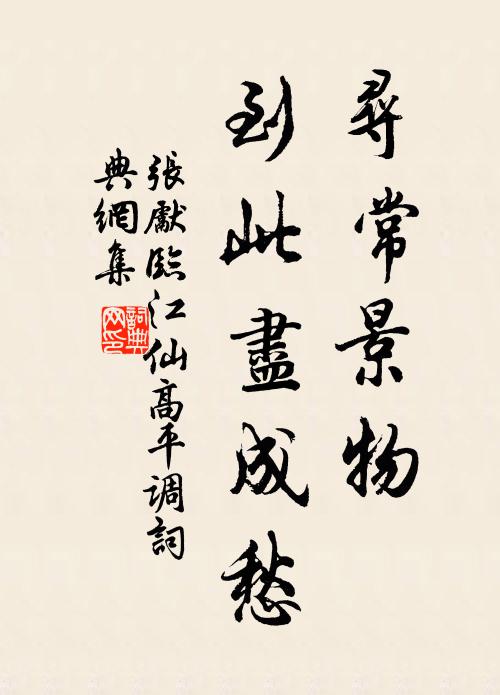 尋常景物
到此盡成愁
張獻臨江仙高平調詞
典網集
詞典
网印